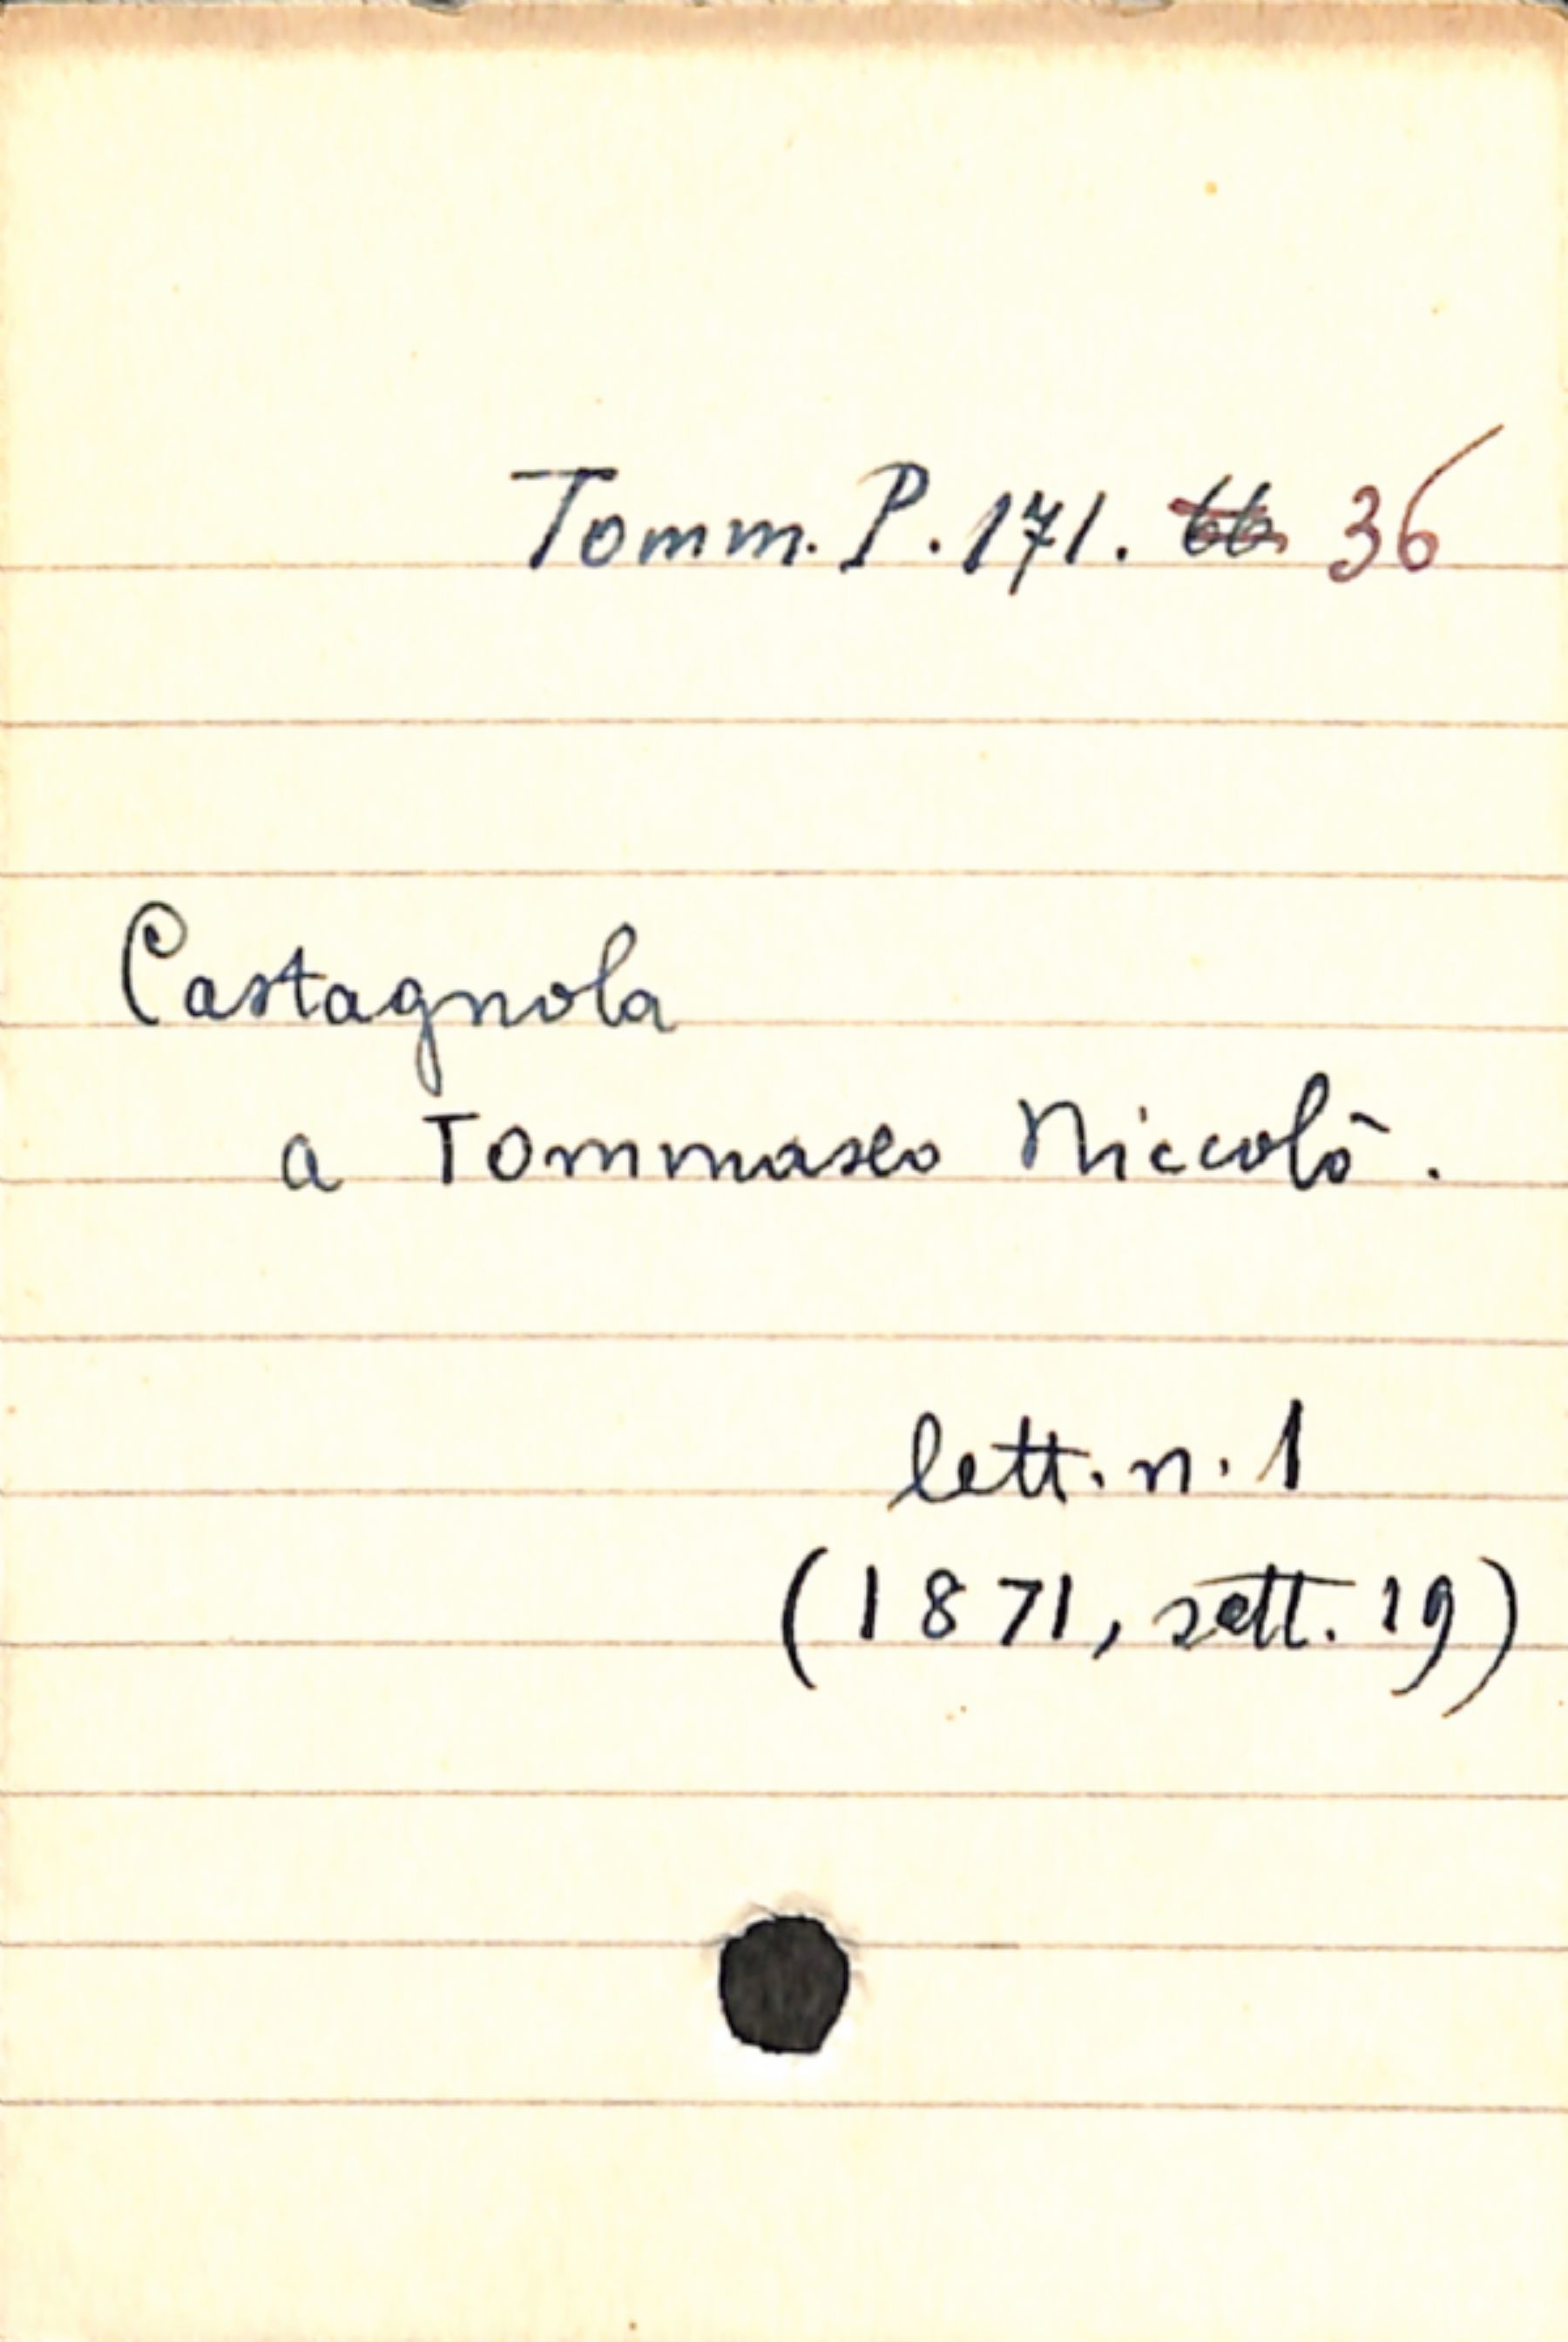 Tomm. P. 171. 36
Castagnola
a Tommaseo Niccolò.
lett. n. 1
(1871, sett. 19)